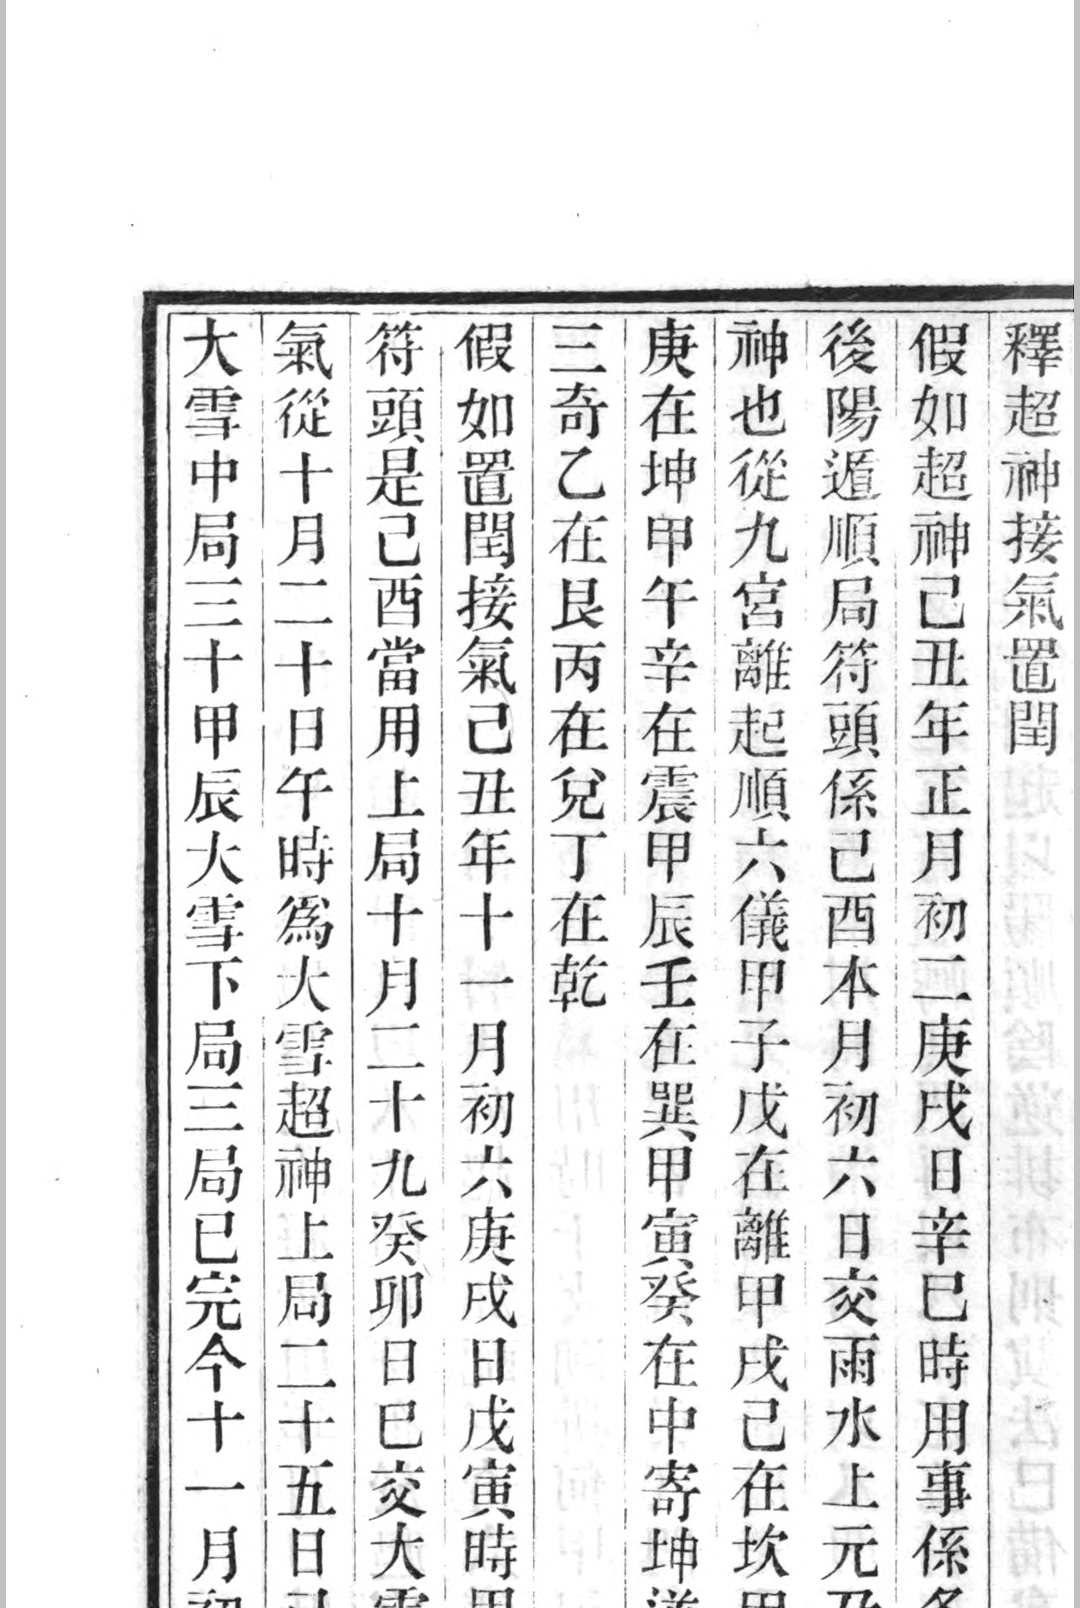 釋超神接氣置閏
假如超神己丑年正月初二庚戌日辛巳時用事係冬
後陽遁順局符頭係己酉本月初六日交雨水上元乃
神也從九宮離起順六儀甲子戊在離甲戌己在坎甲
庚在坤甲午辛在震甲辰壬在巽甲寅癸在中寄坤逆
三奇乙在艮丙在兌丁在乾
假如置閏接氣己丑年十一月初六庚戌日戊寅時用
符頭是己酉當用上局十月二十九癸卯日巳交大雪
氣從十月二十日午時爲大雪超神上局二十五日
大雪中局三十甲辰大雪下局三局已完今十一月初